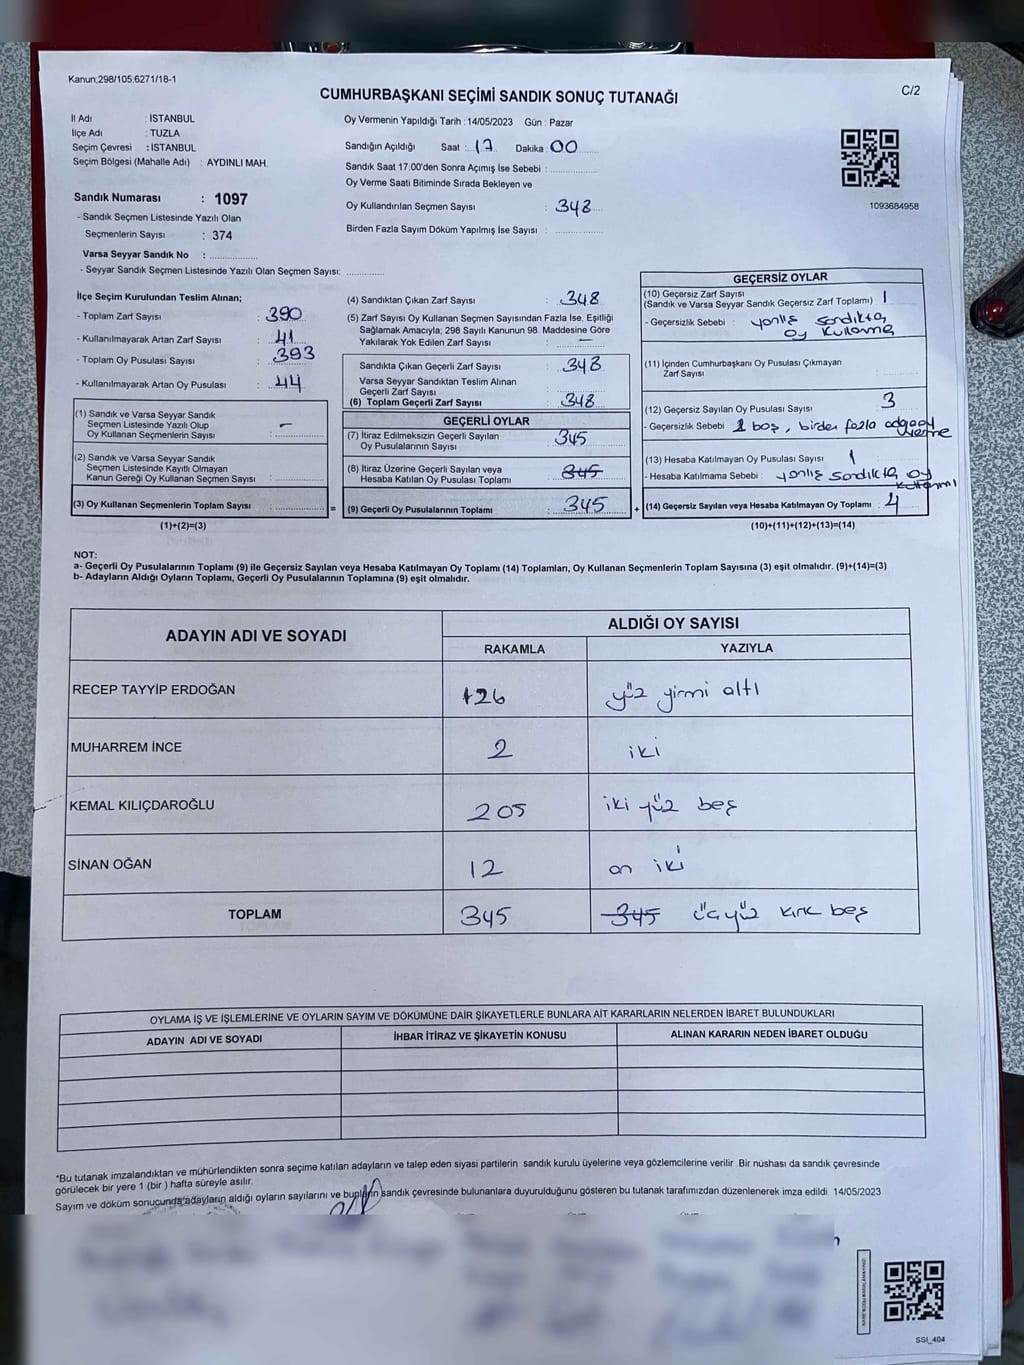 Kanun;298/105;6271/18-1
C/2
CUMHURBAŞKANI SEÇİMİ SANDIK SONUÇ TUTANAĞI
İl Adı : İSTANBUL
İlçe Adı : TUZLA
Seçim Çevresi : İSTANBUL
Seçim Bölgesi (Mahalle Adı) : AYDINLI MAH.
Sandık Numarası : 1097
- Sandık Seçmen Listesinde Yazılı Olan
Seçmenlerin Sayısı : 374
Varsa Seyyar Sandık No :
- Seyyar Sandık Seçmen Listesinde Yazılı Olan Seçmen Sayısı:
Oy Vermenin Yapıldığı Tarih : 14/05/2023 Gün : Pazar
Sandığın Açıldığı Saat : 17 Dakika : 00
Sandık Saat 17:00'den Sonra Açımış İse Sebebi :
Oy Verme Saati Bitiminde Sırada Bekleyen ve
Oy Kullandırılan Seçmen Sayısı : 348
Birden Fazla Sayım Döküm Yapılmış İse Sayısı :
1093684958
İlçe Seçim Kurulundan Teslim Alınan;
- Toplam Zarf Sayısı : 390
- Kullanılmayarak Artan Zarf Sayısı : 41
- Toplam Oy Pusulası Sayısı : 393
- Kullanılmayarak Artan Oy Pusulası : 44
(1) Sandık ve Varsa Seyyar Sandık
Seçmen Listesinde Yazılı Olup
Oy Kullanan Seçmenlerin Sayısı : -
(2) Sandık ve Varsa Seyyar Sandık
Seçmen Listesinde Kayıtlı Olmayan
Kanun Gereği Oy Kullanan Seçmen Sayısı :
(3) Oy Kullanan Seçmenlerin Toplam Sayısı : =
(1)+(2)=(3)
(4) Sandıktan Çıkan Zarf Sayısı : 348
(5) Zarf Sayısı Oy Kullanan Seçmen Sayısından Fazla İse, Eşitliği
Sağlamak Amacıyla; 298 Sayılı Kanunun 98. Maddesine Göre
Yakılarak Yok Edilen Zarf Sayısı : -
Sandıkta Çıkan Geçerli Zarf Sayısı : 348
Varsa Seyyar Sandıktan Teslim Alınan
Geçerli Zarf Sayısı :
(6) Toplam Geçerli Zarf Sayısı : 348
GEÇERLİ OYLAR
(7) İtiraz Edilmeksizin Geçerli Sayılan
Oy Pusulalarının Sayısı : 345
(8) İtiraz Üzerine Geçerli Sayılan veya
Hesaba Katılan Oy Pusulası Toplamı : 345
(9) Geçerli Oy Pusulalarının Toplamı : 345 +
GEÇERSİZ OYLAR
(10) Geçersiz Zarf Sayısı
(Sandık ve Varsa Seyyar Sandık Geçersiz Zarf Toplamı) 1
- Geçersizlik Sebebi : yanlış sandıkta
oy kullanma
(11) İçinden Cumhurbaşkanı Oy Pusulası Çıkmayan
Zarf Sayısı :
(12) Geçersiz Sayılan Oy Pusulası Sayısı : 3
- Geçersizlik Sebebi : 1 boş, birden fazla adaya oy
verme
(13) Hesaba Katılmayan Oy Pusulası Sayısı : 1
- Hesaba Katılmama Sebebi : yanlış sandıkta oy
kullanımı
(14) Geçersiz Sayılan veya Hesaba Katılmayan Oy Toplamı : 4
(10)+(11)+(12)+(13)=(14)
NOT:
a- Geçerli Oy Pusulalarının Toplamı (9) ile Geçersiz Sayılan veya Hesaba Katılmayan Oy Toplamı (14) Toplamları, Oy Kullanan Seçmenlerin Toplam Sayısına (3) eşit olmalıdır. (9)+(14)=(3)
b- Adayların Aldığı Oyların Toplamı, Geçerli Oy Pusulalarının Toplamına (9) eşit olmalıdır.
ADAYIN ADI VE SOYADI ALDIĞI OY SAYISI
RAKAMLA YAZIYLA
RECEP TAYYİP ERDOĞAN 126 yüz yirmi altı
MUHARREM İNCE 2 iki
KEMAL KILIÇDAROĞLU 205 iki yüz beş
SİNAN OĞAN 12 on iki
TOPLAM 345 345 üçyüz kırk beş
OYLAMA İŞ VE İŞLEMLERİNE VE OYLARIN SAYIM VE DÖKÜMÜNE DAİR ŞİKAYETLERLE BUNLARA AİT KARARLARIN NELERDEN İBARET BULUNDUKLARI
ADAYIN ADI VE SOYADI İHBAR İTİRAZ VE ŞİKAYETİN KONUSU ALINAN KARARIN NEDEN İBARET OLDUĞU
*Bu tutanak imzalandıktan ve mühürlendikten sonra seçime katılan adayların ve talep eden siyasi partilerin sandık kurulu üyelerine veya gözlemcilerine verilir .Bir nüshası da sandık çevresinde
görülecek bir yere 1 (bir ) hafta süreyle asılır.
Sayım ve döküm sonucunda adayların aldığı oyların sayılarını ve bunların sandık çevresinde bulunanlara duyurulduğunu gösteren bu tutanak tarafımızdan düzenlenerek imza edildi. 14/05/2023
SSI_404